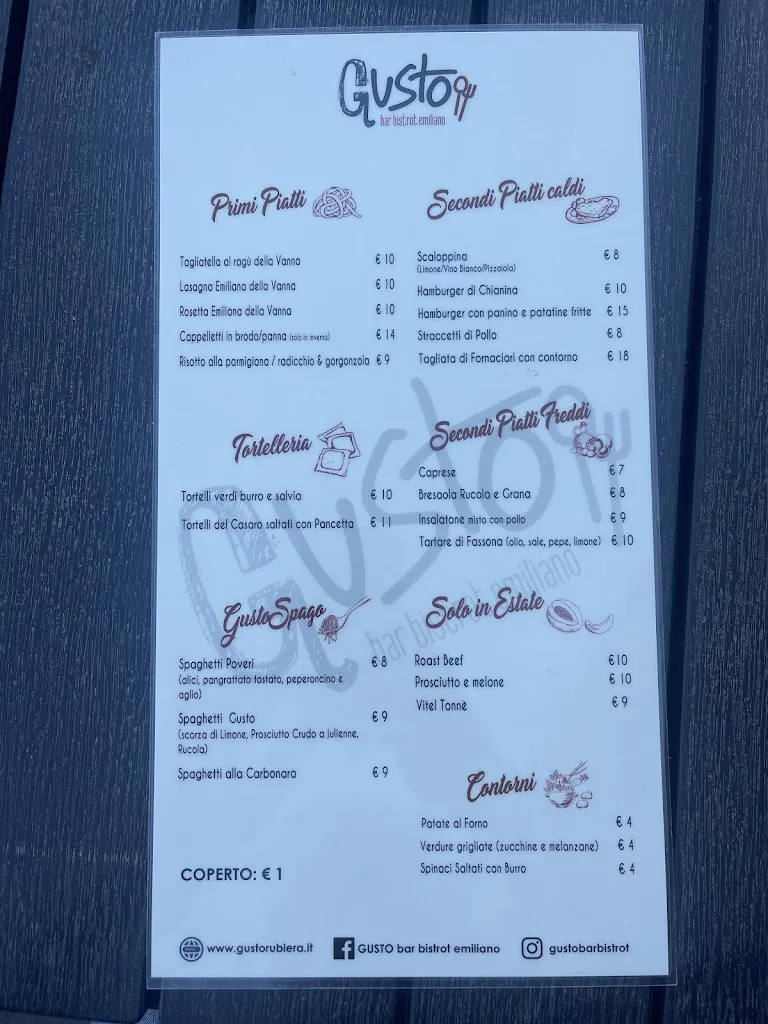 GUSTO
bar bistrot emiliano
Primi Piatti
Tagliatella al ragù della Vanna € 10
Lasagna Emiliana della Vanna € 10
Rosetta Emiliana della Vanna € 10
Cappelletti in brodo/panna (solo in inverno) € 14
Risotto alla parmigiana / radicchio & gorgonzola € 9
Tortelleria
Tortelli verdi burro e salvia € 10
Tortelli del Casaro saltati con Pancetta € 11
GustoSpago
Spaghetti Poveri € 8
(alici, pangrattato tostato, peperoncino e
aglio)
Spaghetti Gusto € 9
(scorza di Limone, Prosciutto Crudo a Julienne,
Rucola)
Spaghetti alla Carbonara € 9
COPERTO: € 1
Secondi Piatti caldi
Scaloppina € 8
(Limone/Vino Bianco/Pizzaiola)
Hamburger di Chianina € 10
Hamburger con panino e patatine fritte € 15
Straccetti di Pollo € 8
Tagliata di Fornaciari con contorno € 18
Secondi Piatti Freddi
Caprese € 7
Bresaola Rucola e Grana € 8
Insalatone misto con pollo € 9
Tartare di Fassona (olio, sale, pepe, limone) € 10
Solo in Estate
Roast Beef €10
Prosciutto e melone € 10
Vitel Tonnè € 9
Contorni
Patate al Forno € 4
Verdure grigliate (zucchine e melanzane) € 4
Spinaci Saltati con Burro € 4
www.gustorubiera.it GUSTO bar bistrot emiliano gustobarbistrot
GUSTO
bar bistrot emiliano